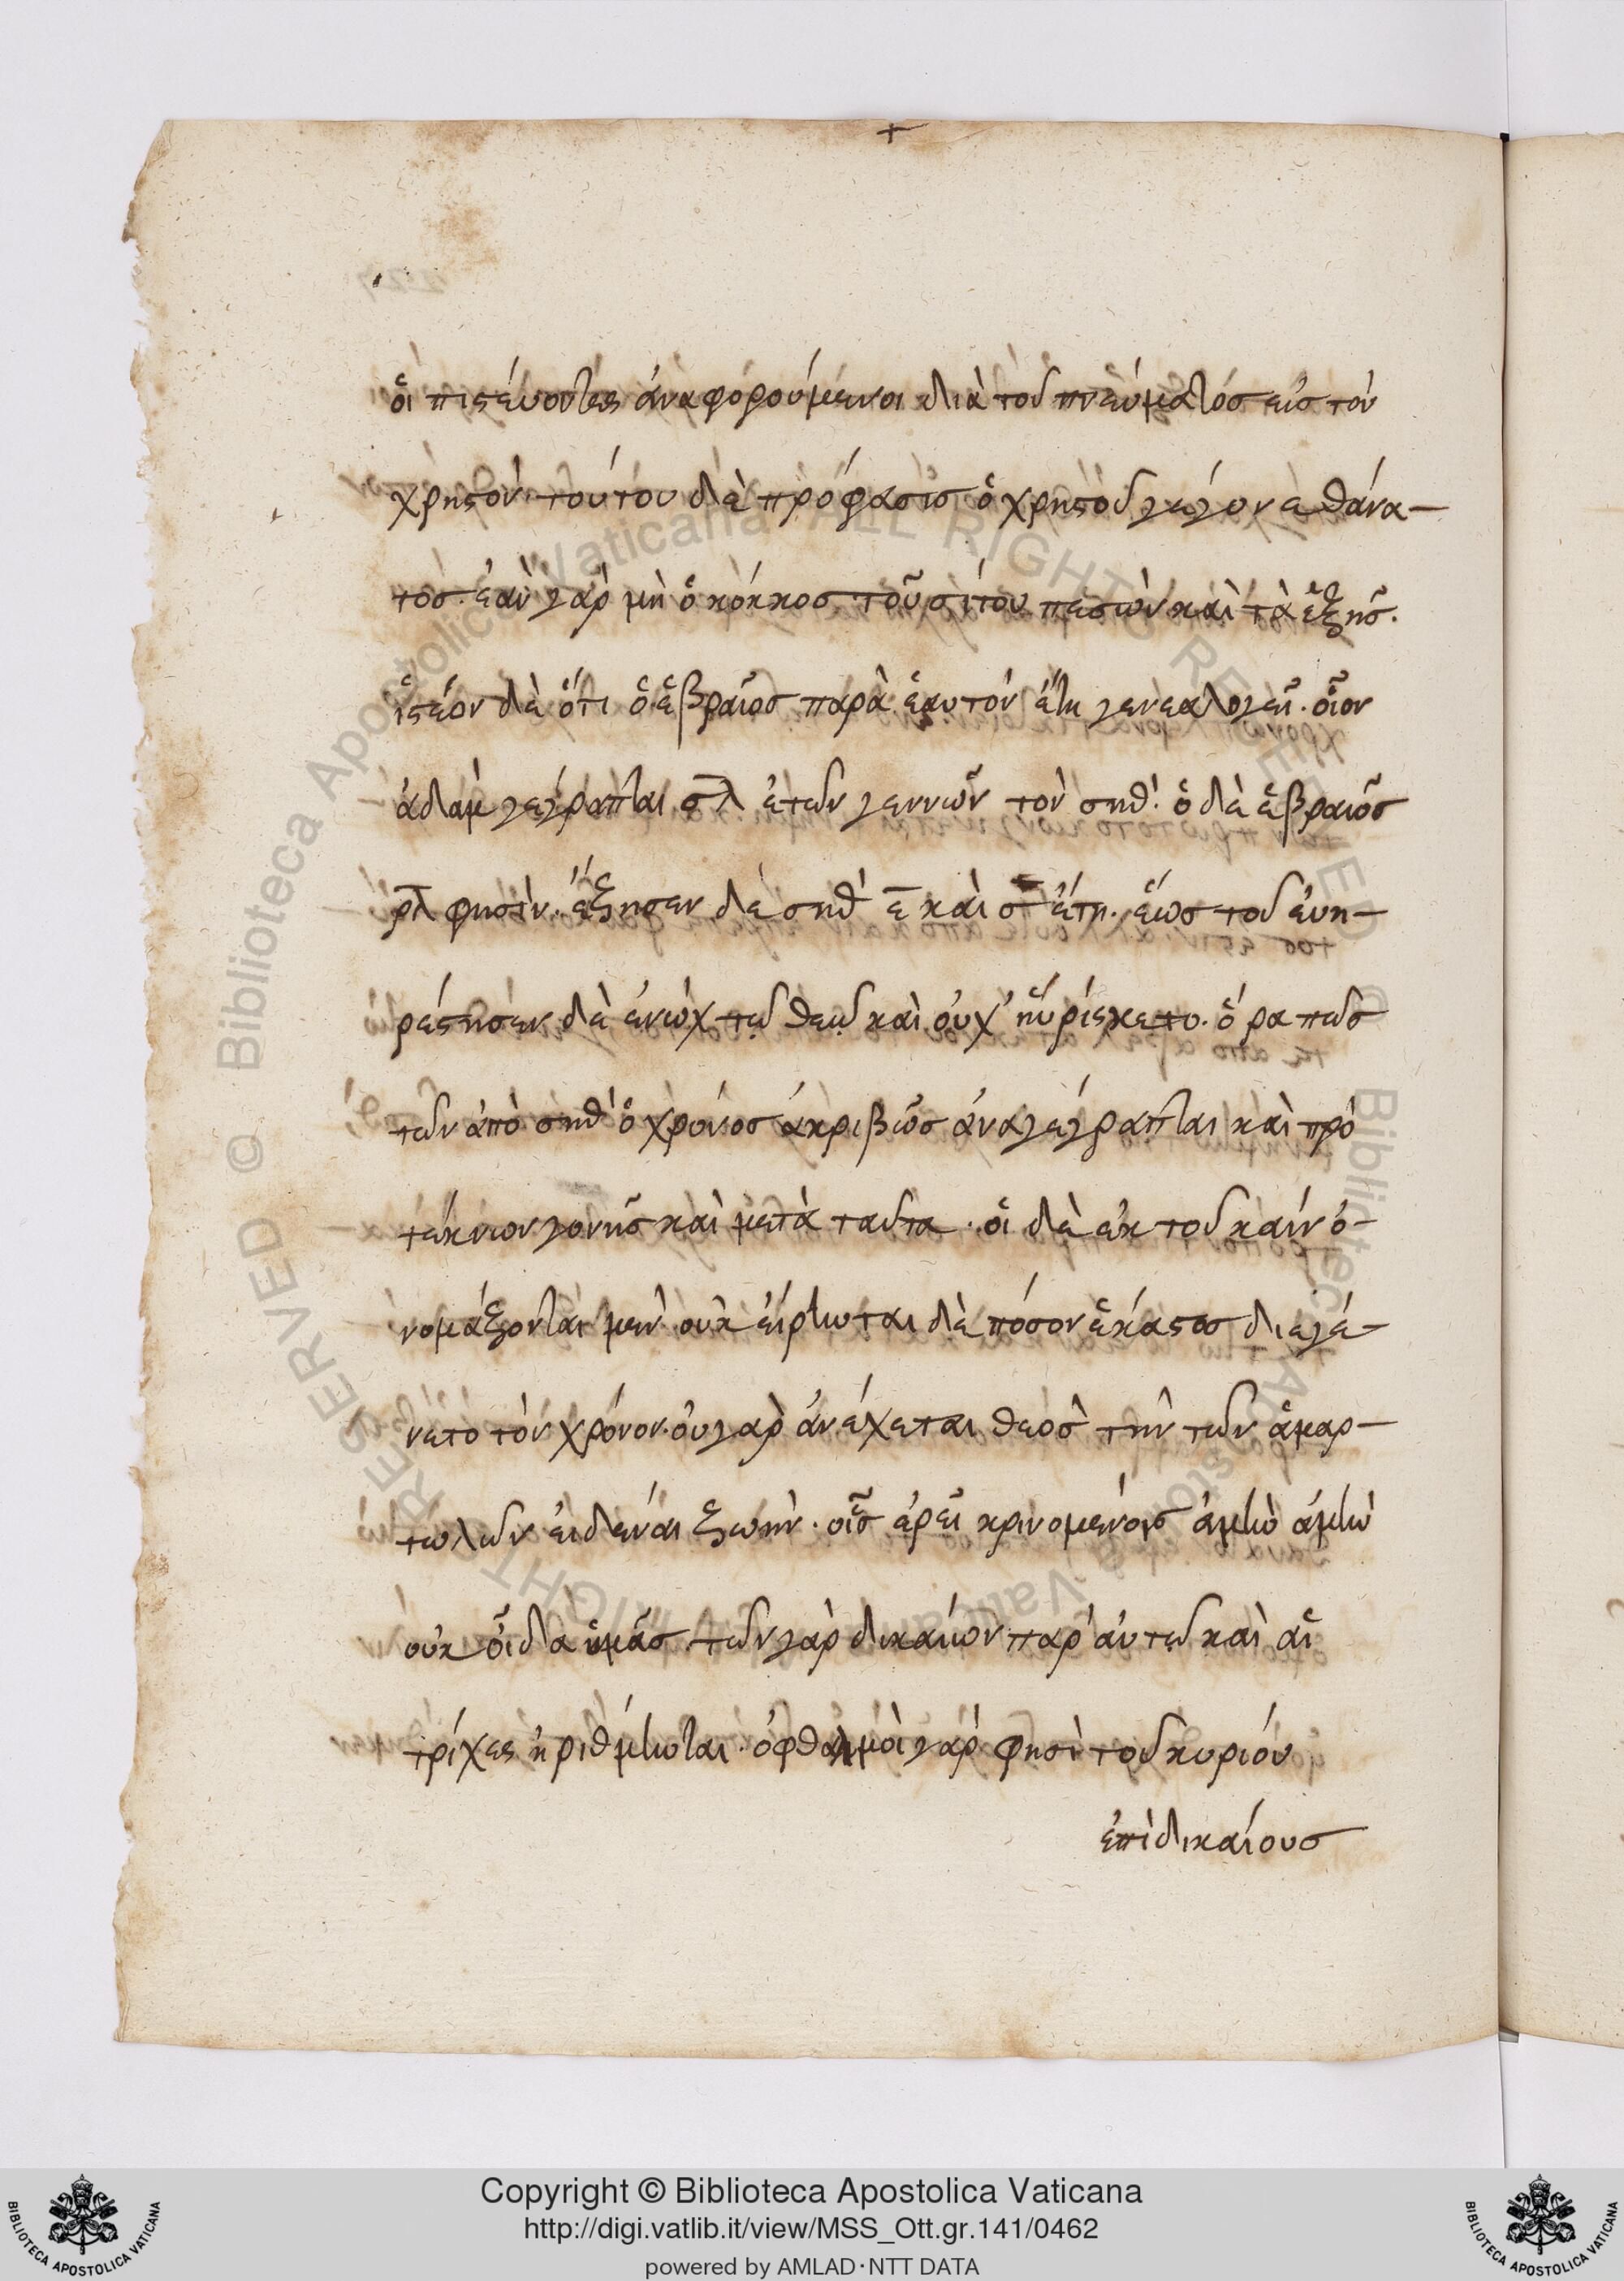 +
οἱ πιστεύοντες ἀναφορούμενοι διὰ τοῦ πνεύματός εἰς τὸν
χρηστόν· τούτου δὲ πρόφασις ὁ χρηστοῦ γέγονε θάνα-
τος. ἐὰν γὰρ μὴ ὁ κόκκος τοῦ σίτου πεσὼν καὶ τὰ ἑξῆς.
ἰστέον δὲ ὅτι ὁ ἑβραῖος παρὰ ἑαυτὸν ἔτη γενεαλογεῖ. οἷον
ἀδὰμ γέγραπται σλ ἐτῶν γεννῶν τὸν σηθ'. ὁ δὲ ἑβραιὸς
ρλ φησὶν. ἔζησεν δὲ σηθ' ε καὶ σ ἔτη. ἕως τοῦ ἐυη-
ρέστησεν δὲ ἐνὼχ τῷ θεῷ καὶ οὐχ' ηὑρίσκετο. ὅρα πῶς
τῶν ἀπὸ σηθ' ὁ χρόνος ἀκριβῶς ἀναγέγραπται καὶ πρὸ
τέκνων γονῆς καὶ μετὰ ταῦτα. οἱ δὲ ἐκ τοῦ καὶν ὀ-
νομάζονται μὲν οὐκ εἴρηται δὲ πόσον ἕκαστος διεγέ-
νετο τὸν χρόνον. οὐ γὰρ ἀνέχεται θεὸς τὴν τῶν ἁμαρ-
τωλῶν εἰδέναι ζωήν. οἷς ἐρεῖ κρινομένοις ἀμὴν ἀμὴν
οὐκ οἶδα ὑμᾶς. τῶν γὰρ δικαίων παρ' αὐτῷ καὶ αἱ
τρίχες ἠρίθμηνται. ὀφθαλμοὶ γὰρ φησὶ τοῦ κυρίου
ἐπὶ δικαίους
Copyright © Biblioteca Apostolica Vaticana
http://digi.vatlib.it/view/MSS_Ott.gr.141/0462
powered by AMLAD·NTT DATA
BIBLIOTECA APOSTOLICA VATICANA
BIBLIOTECA APOSTOLICA VATICANA